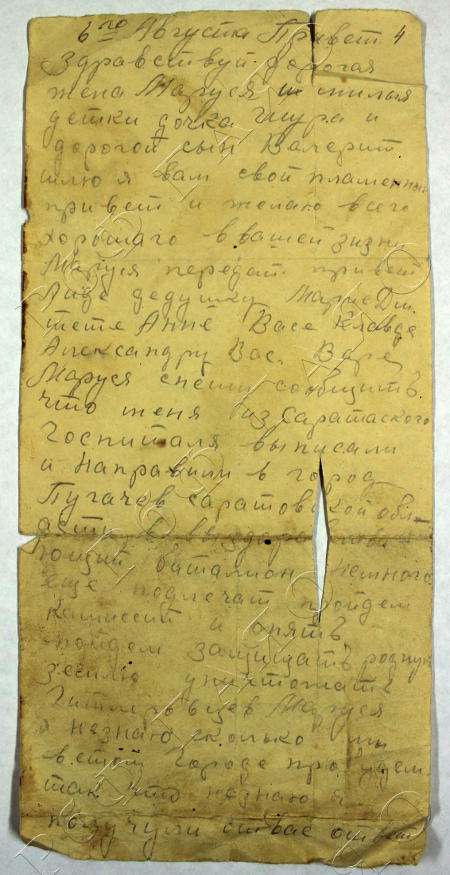 6го Августа Привет 4
Здравствуй Дорогая
жена Маруся и милыя
детки дочка Шура и
дорогой сын Валерий
шлю я вам свой пламенный
привет и желаю всего
хорошаго в вашей жизни
Маруся передай привет
Лиде дедушку Марие Дм.
тете Анне Васе Клавде
Александру Вас. Варе
Маруся спешу сообщить
что меня из Саратаского
Госпиталя выписали
и направили в город
Пугачев Саратовской обл-
асти в выздаравлива
ющий баталион немного
еще подлечат пройдем
камиссий и опять
пойдем защищать родную
землю уничтожать
Гитлеровцев Маруся
я незнаю сколько мы
в етом городе пробудем
так что незнаю я
получули от вас ответ